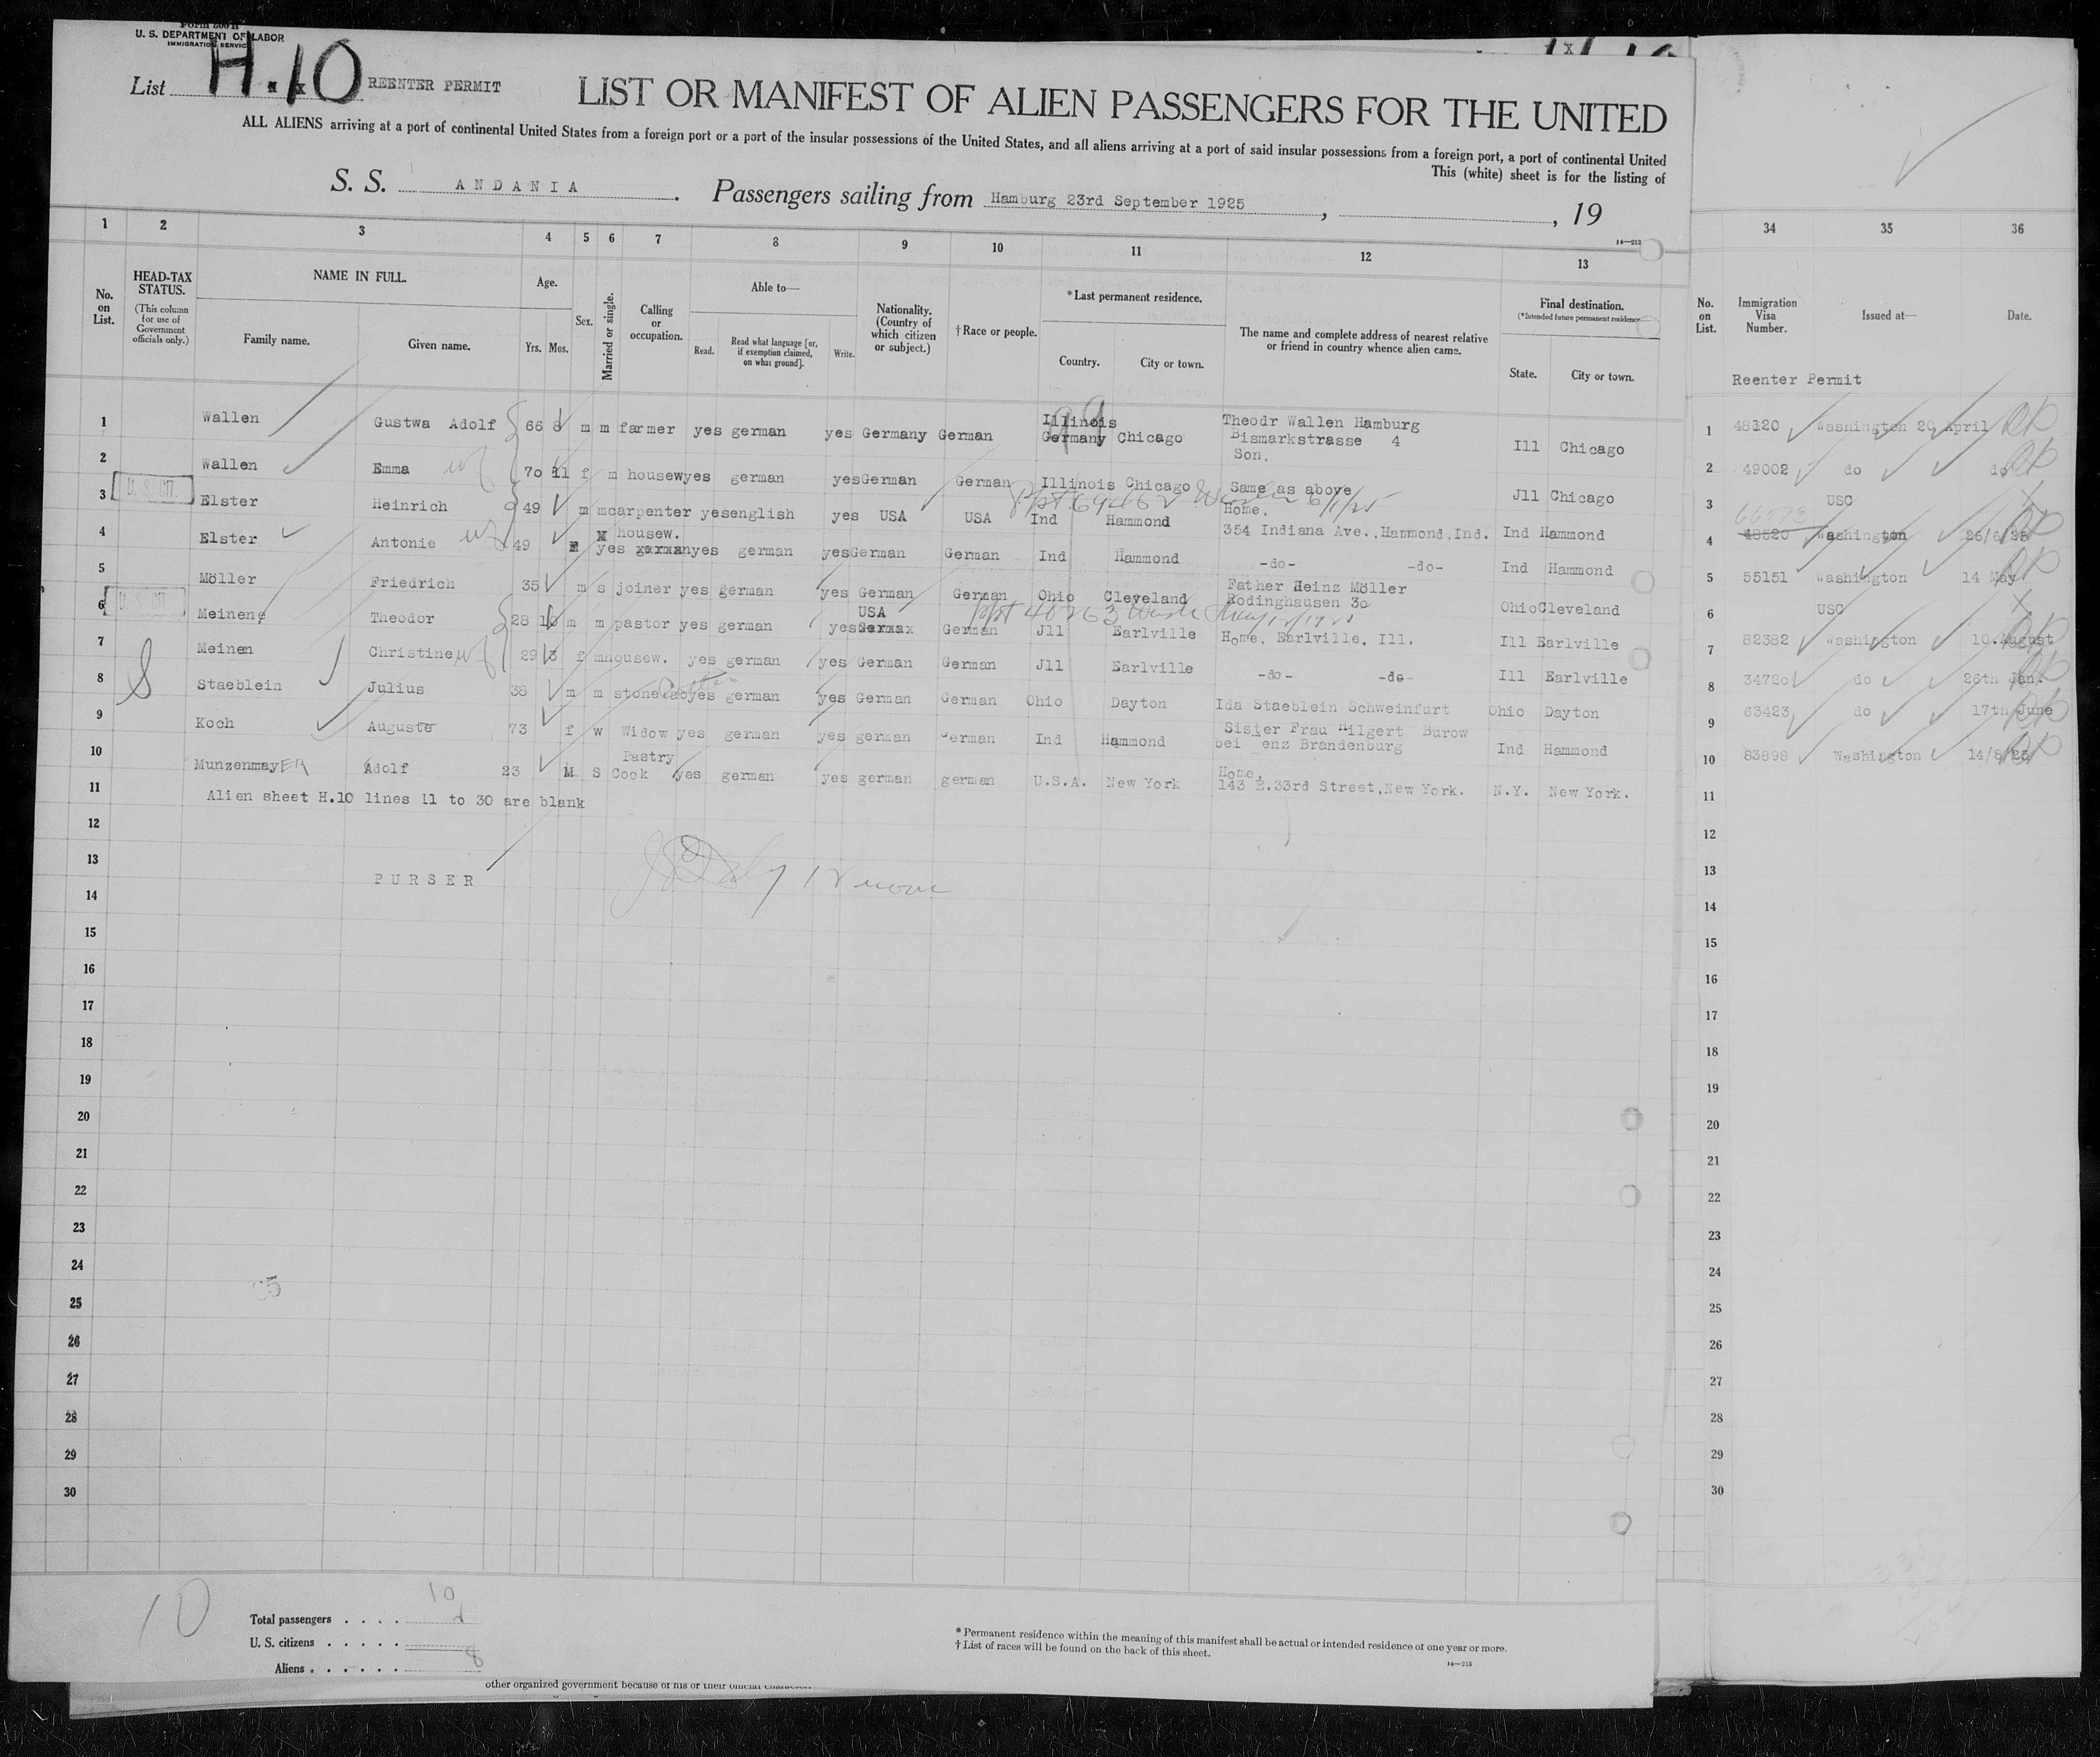 Form 500 B
U. S. DEPARTMENT OF LABOR
IMMIGRATION SERVICE
List H.10 REENTER PERMIT
LIST OR MANIFEST OF ALIEN PASSENGERS FOR THE UNITED
ALL ALIENS arriving at a port of continental United States from a foreign port or a port of the insular possessions of the United States, and all aliens arriving at a port of said insular possessions from a foreign port, a port of continental United
This (white) sheet is for the listing of
S. S. ANDANIA. Passengers sailing from Hamburg 23rd September 1925, , 19
14—213
1 2 3 4 5 6 7 8 9 10 11 12 13 34 35 36
No. on List.
HEAD-TAX STATUS.
(This column for use of Government officials only.)
NAME IN FULL.
Family name. Given name.
Age.
Yrs. Mos.
Sex.
Married or single.
Calling or occupation.
Able to—
Read. Read what language [or, if exemption claimed, on what ground]. Write.
Nationality. (Country of which citizen or subject.)
†Race or people.
*Last permanent residence.
Country. City or town.
The name and complete address of nearest relative or friend in country whence alien came.
Final destination.
(*Intended future permanent residence
State. City or town.
No. on List.
Immigration Visa Number.
Issued at—
Date.
Reenter Permit
1 Wallen Gustwa Adolf 66 8 m m farmer yes german yes Germany German Illinois Germany Chicago Theodr Wallen Hamburg Bismarkstrasse 4 Son. Ill Chicago 1 48120 Washington 20 April OK
2 Wallen Emma wf 70 11 f m housewyes german yesGerman German Illinois Chicago Same as above Jll Chicago 2 49002 do do OK
3 U. S. CIT. Elster Heinrich 49 m mcarpenter yesenglish yes USA USA Ind Hammond Home. 354 Indiana Ave.,Hammond,Ind. Ind Hammond 3 USC X
4 Elster Antonie wf 49 yes housew. yes german yesGerman German Ind Hammond -do- -do- Ind Hammond 4 66573 48520 Washington 26/6/25 OK
5 Möller Friedrich 35 m s joiner yes german yes German German Ohio Cleveland Father Heinz Möller Rodinghausen 30 OhioCleveland 5 55151 Washington 14 May OK
6 U. S. CIT. Meinene Theodor 28 10 m m pastor yes german yes USA German Jll Earlville Home, Earlville, Ill. Ill Earlville 6 USC X
7 Meinen Christine wf 29 3 f mhousew. yes german yes German German Jll Earlville -do- -do- Ill Earlville 7 82382 Washington 10.August OK
8 Staeblein Julius 38 m m stone yes german yes German German Ohio Dayton Ida Staeblein Schweinfurt Ohio Dayton 8 34720 do 26th Jan. OK
9 Koch Auguste 73 f w Widow yes german yes german German Ind Hammond Sister Frau Hilgert Burow bei enz Brandenburg Ind Hammond 9 63423 do 17th June OK
10 MunzenmayER Adolf 23 M S Pastry Cook yes german yes german german U.S.A. New York Home, 143 E.33rd Street,New York. N.Y. New York. 10 83898 Washington 14/8/25 OK
11 Alien sheet H.10 lines 11 to 30 are blank 11
12 12
13 13
PURSER
14 14
15 15
16 16
17 17
18 18
19 19
20 20
21 21
22 22
23 23
24 24
25 25
26 26
27 27
28 28
29 29
30 30
10
Total passengers . . . . 10
U. S. citizens . . . . .
Aliens . . . . . . 8
* Permanent residence within the meaning of this manifest shall be actual or intended residence of one year or more.
† List of races will be found on the back of this sheet.
14—213
other organized government because of his or their official character.